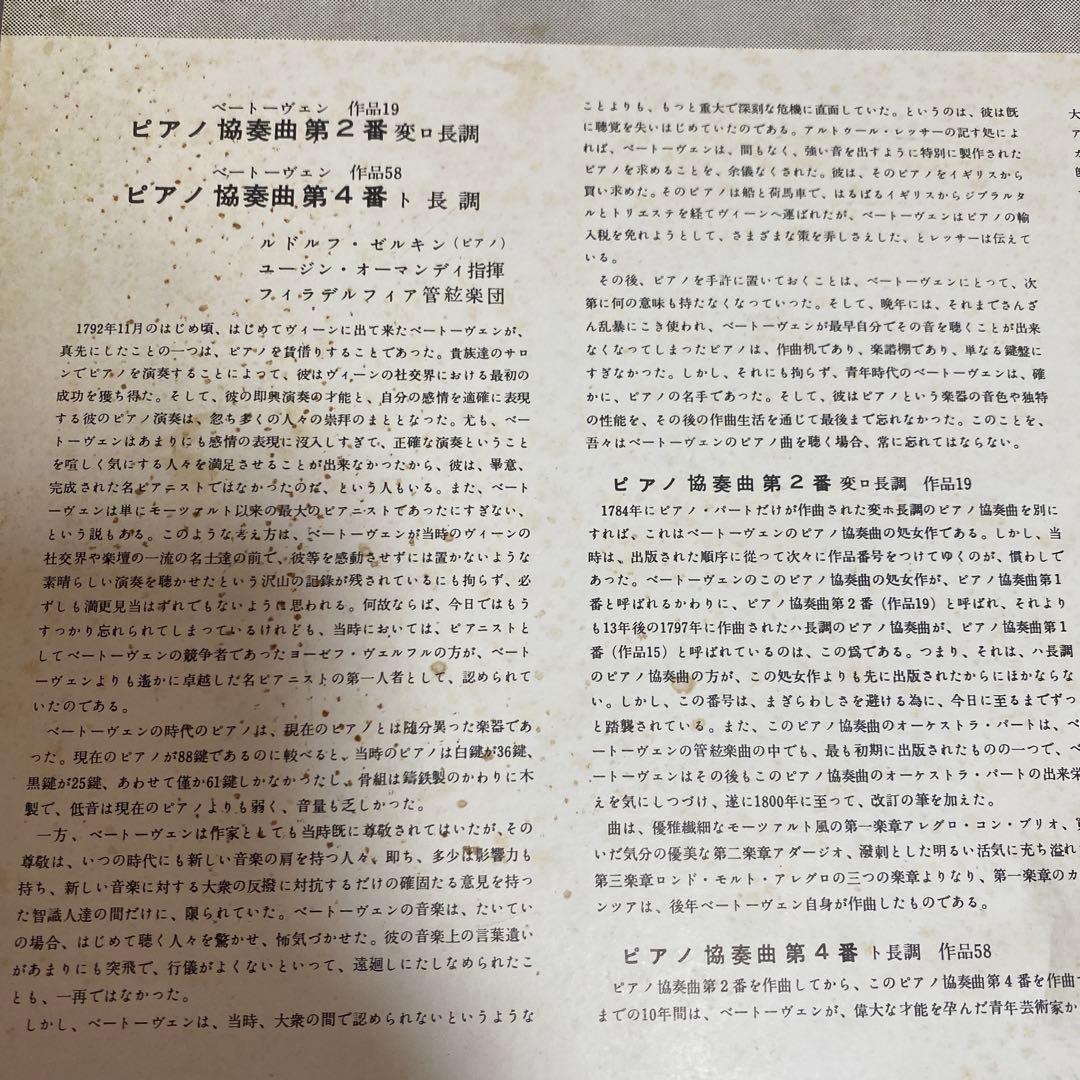 ベートーヴェン　作品19
ピアノ協奏曲第2番 変ロ長調
ベートーヴェン　作品58
ピアノ協奏曲第4番 ト長調
ルドルフ・ゼルキン(ピアノ)
ユージン・オーマンディ指揮
フィラデルフィア管絃楽団
1792年11月のはじめ頃、はじめてヴィーンに出て来たベートーヴェンが、
真先にしたことの一つは、ピアノを賃借りすることであった。貴族達のサロ
ンでピアノを演奏することによつて、彼はヴィーンの社交界における最初の
成功を獲ち得た。そして、彼の即興演奏の才能と、自分の感情を適確に表現
する彼のピアノ演奏は、忽ち多くの人々の崇拜のまととなった。尤も、ベー
トーヴェンはあまりにも感情の表現に沒入しすぎて、正確な演奏ということ
を喧しく気にする人々を満足させることが出来なかったから、彼は、畢意、
完成された名ピアニストではなかったのだ、という人もいる。また、ベート
ーヴェンは単にモーツァルト以来の最大のピアニストであったにすぎない、
という説もある。このような考え方は、ベートーヴェンが当時のヴィーンの
社交界や楽壇の一流の名士達の前で、彼等を感動させずには置かないような
素晴らしい演奏を聴かせたという沢山の記錄が残されているにも拘らず、必
ずしも満更見当はずれでもないように思われる。何故ならば、今日ではもう
すっかり忘れられてしまつているけれども、当時においては、ピアニストと
してベートーヴェンの競争者であったヨーゼフ・ヴェルフルの方が、ベート
ーヴェンよりも遙かに卓越した名ピアニストの第一人者として、認められて
いたのである。
ベートーヴェンの時代のピアノは、現在のピアノとは随分異った楽器であ
った。現在のピアノが88鍵であるのに較べると、当時のピアノは白鍵が36鍵、
黒鍵が25鍵、あわせて僅か61鍵しかなかったし、骨組は鑄鉄製のかわりに木
製で、低音は現在のピアノよりも弱く、音量も乏しかった。
一方、ベートーヴェンは作家としても当時旣に尊敬されてはいたが、その
尊敬は、いつの時代にも新しい音楽の肩を持つ人々、即ち、多少は影響力も
持ち、新しい音楽に対する大衆の反撥に対抗するだけの確固たる意見を持つ
た智識人達の間だけに、限られていた。ベートーヴェンの音楽は、たいてい
の場合、はじめて聴く人々を驚かせ、怖気づかせた。彼の音楽上の言葉遣い
があまりにも突飛で、行儀がよくないといって、遠廻しにたしなめられたこ
とも、一再ではなかった。
しかし、ベートーヴェンは、当時、大衆の間で認められないというような
ことよりも、もっと重大で深刻な危機に直面していた。というのは、彼は旣
に聴覚を失いはじめていたのである。アルトゥール・レッサーの記す処によ
れば、ベートーヴェンは、間もなく、強い音を出すように特別に製作された
ピアノを求めることを、余儀なくされた。彼は、そのピアノをイギリスから
買い求めた。そのピアノは船と荷馬車で、はるばるイギリスからジブラルタ
ルとトリエステを経てヴィーンへ運ばれたが、ベートーヴェンはピアノの輸
入税を免れようとして、さまざまな策を弄しさえした、とレッサーは伝えて
いる。
その後、ピアノを手許に置いておくことは、ベートーヴェンにとって、次
第に何の意味も持たなくなっていった。そして、晩年には、それまでさんざ
ん乱暴にこき使われ、ベートーヴェンが最早自分でその音を聴くことが出来
なくなってしまったピアノは、作曲机であり、楽譜棚であり、単なる鍵盤に
すぎなかった。しかし、それにも拘らず、青年時代のベートーヴェンは、確
かに、ピアノの名手であった。そして、彼はピアノという楽器の音色や独特
の性能を、その後の作曲生活を通じて最後まで忘れなかった。このことを、
吾々はベートーヴェンのピアノ曲を聴く場合、常に忘れてはならない。
ピアノ協奏曲第2番 変ロ長調　作品19
1784年にピアノ・パートだけが作曲された変ホ長調のピアノ協奏曲を別に
すれば、これはベートーヴェンのピアノ協奏曲の処女作である。しかし、当
時は、出版された順序に從つて次々に作品番号をつけてゆくのが、慣わしで
あった。ベートーヴェンのこのピアノ協奏曲の処女作が、ピアノ協奏曲第1
番と呼ばれるかわりに、ピアノ協奏曲第2番（作品19）と呼ばれ、それより
も13年後の1797年に作曲されたハ長調のピアノ協奏曲が、ピアノ協奏曲第1
番（作品15）と呼ばれているのは、この為である。つまり、それは、ハ長調
のピアノ協奏曲の方が、この処女作よりも先に出版されたからにほかならな
い。しかし、この番号は、まぎらわしさを避ける為に、今日に至るまでずっ
と踏襲されている。また、このピアノ協奏曲のオーケストラ・パートは、ベ
ートーヴェンの管絃楽曲の中でも、最も初期に出版されたものの一つで、ベ
ートーヴェンはその後もこのピアノ協奏曲のオーケストラ・パートの出来栄
えを気にしつづけ、遂に1800年に至って、改訂の筆を加えた。
曲は、優雅繊細なモーツァルト風の第一楽章アレグロ・コン・ブリオ、
いだ気分の優美な第二楽章アダージオ、潑剌とした明るい活気に充ち溢れ
第三楽章ロンド・モルト・アレグロの三つの楽章よりなり、第一楽章のカ
ンツァは、後年ベートーヴェン自身が作曲したものである。
ピアノ協奏曲第4番 ト長調　作品58
ピアノ協奏曲第2番を作曲してから、このピアノ協奏曲第4番を作曲
までの10年間は、ベートーヴェンが、偉大な才能を孕んだ青年芸術家か
大
ア